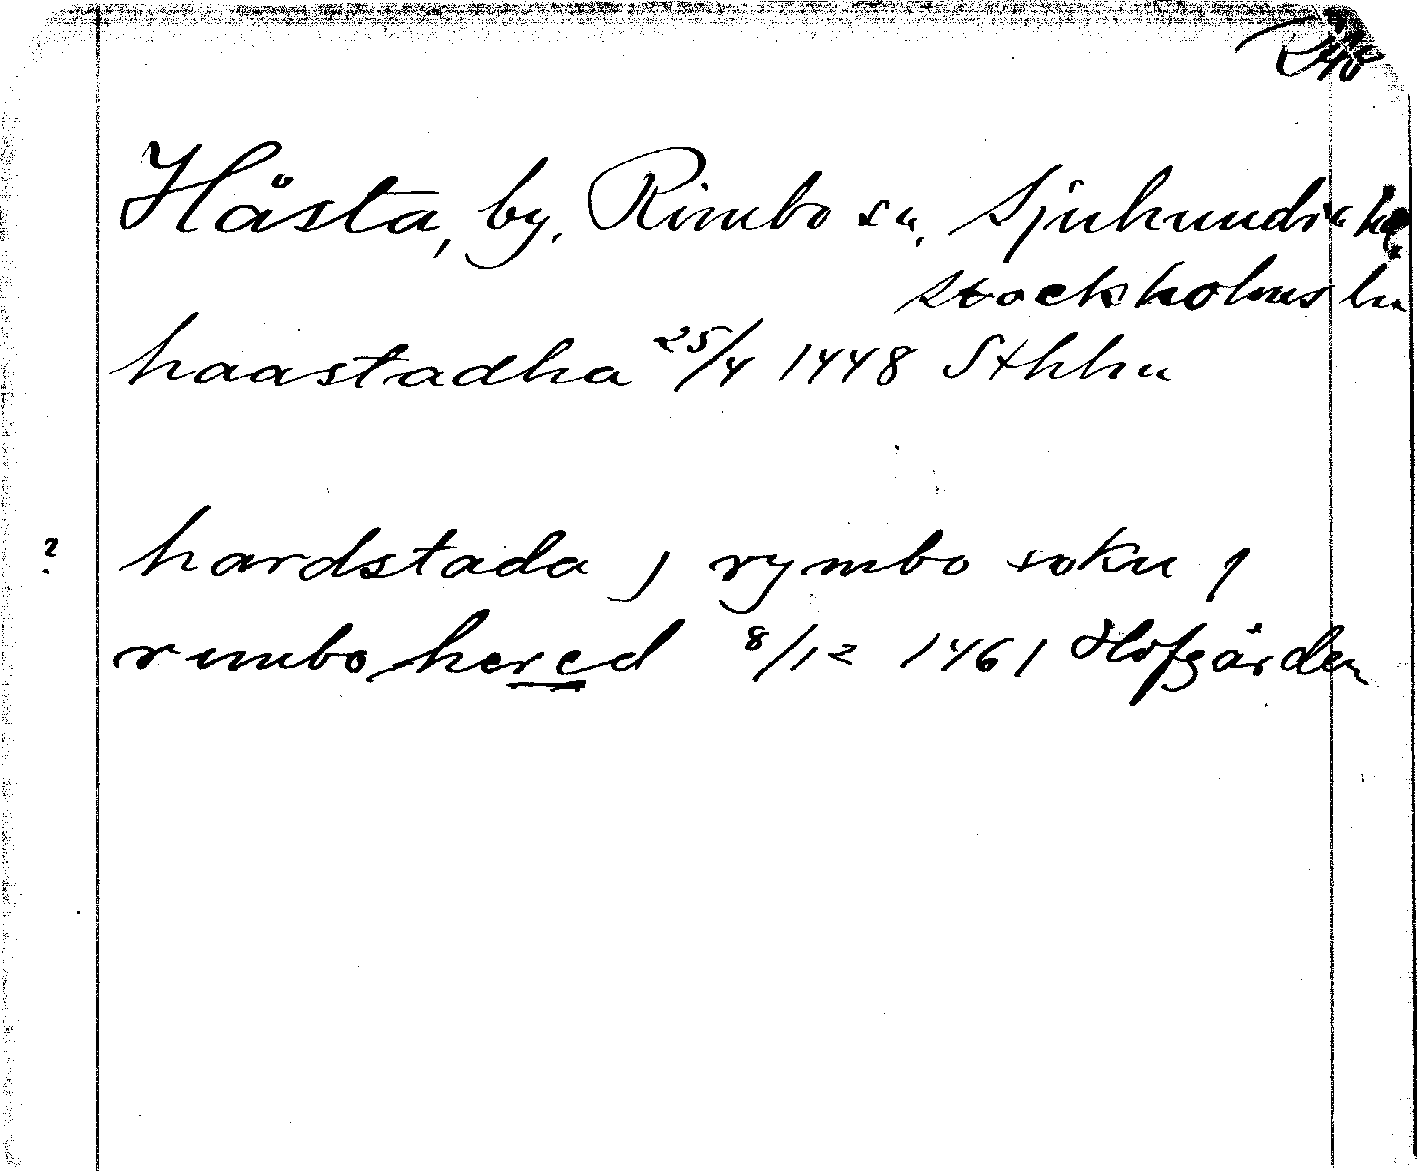 Håsta, by, Rimbo sn, Sjuhundra
Stockholms län
haastadha 25/4 1448 Sthlm
? hardstada j rymbo sokn j
rimbo hered 8/12 1461 Hofgården